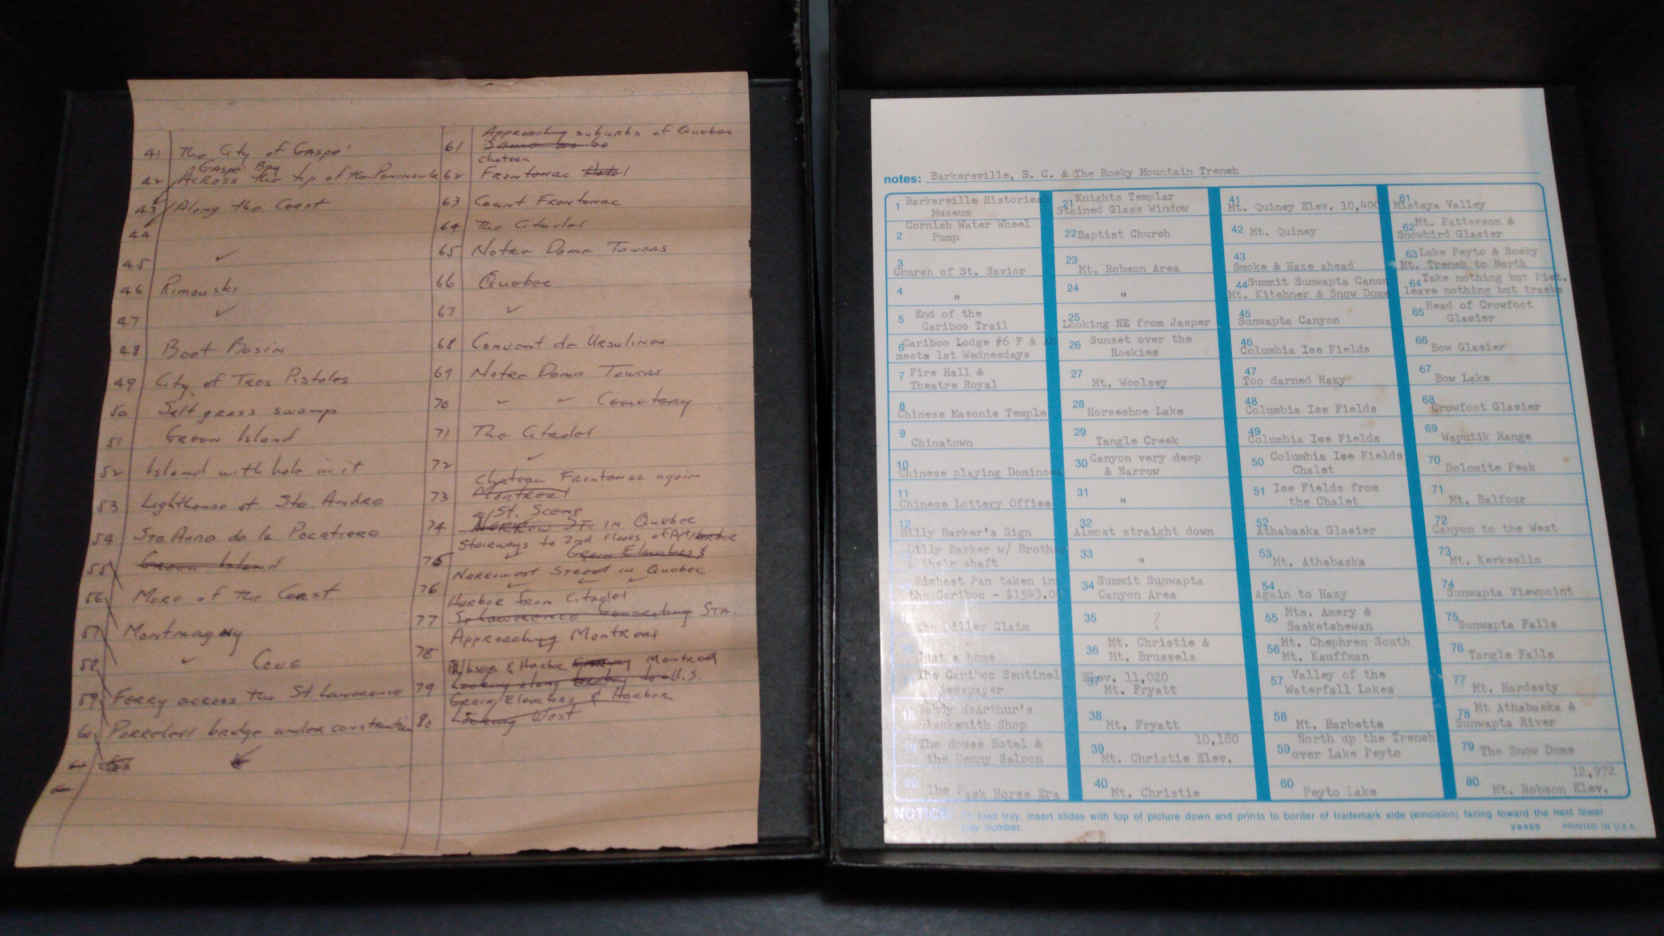 41 The City of Gaspe'
Gaspe Bay
42 Across the tip of the Peninsula
43 Along the Coast
44
45 ✓
46 Rimouski
47 ✓
48 Boat Basin
49 City of Tros Pistoles
50 Salt grass swamp
51 Green Island
52 Island with hole in it
53 Lighthouse at Ste. Andre
54 Ste Anne de la Pocatiere
55 Green Island
56 More of the Coast
57 Montmagny
58 ✓ Cove
59 Ferry across the St. Lawrence
60 bridge under construction
Approaching suburbs of Quebec
61
chateau
62 Frontenac Hotel
63 Count Frontenac
64 The Citadel
65 Notre Dame Towers
66 Quebec
67 ✓
68 Convent de Ursulines
69 Notre Dame Towers
70 " " Cemetery
71 The Citadel
72 ✓
Chateau Frontenac again
73 Montreal
St. Scene
74 in Quebec
Stairways to 2nd floors of
75 Grain Elevators
Narrowest Street in Quebec
76 ✓ ✓ ✓
Harbor from Citadel
77
Approaching Montreal
78
Montreal
79 Looking along
Grain Elevators & Harbor
80 Looking West
notes: Barkersville, B. C. & The Rocky Mountain Trench
1 Barkerville Historical
Museum
2 Cornish Water Wheel
Pump
3
Church of St. Savior
4 "
5 End of the
Cariboo Trail
6 Cariboo Lodge #6 F & A
meets 1st Wednesdays
7 Fire Hall &
Theatre Royal
8
Chinese Masonic Temple
9
Chinatown
10
Chinese playing Dominoes
11
Chinese Lottery Office
12
Billy Barker's Sign
Billy Barker w/ Broth
their shaft
Richest Pan taken in
the Cariboo - $1593.0
The Diller Claim
What a home
The Cariboo Sentinel
Newspaper
McArthur's
Blacksmith Shop
The House Hotel &
the Denny Saloon
20 The Horse Era
21 Knights Templar
Stained Glass Window
22 Baptist Church
23
Mt. Robson Area
24 "
25
Looking NE from Jasper
26 Sunset over the
Rockies
27
Mt. Woolsey
28
Horseshoe Lake
29
Tangle Creek
30 Canyon very deep
& Narrow
31 "
32
Almost straight down
33 "
34 Summit Sunwapta
Canyon Area
35 ?
36 Mt. Christie &
Mt. Brussels
37 Elev. 11,020
Mt. Fryatt
38
Mt. Fryatt
39 10,180
Mt. Christie Elev.
40 Mt. Christie
41
Mt. Quincy Elev. 10,400
42 Mt. Quincy
43
Smoke & Haze ahead
44 Summit Sunwapta Canon
Mt. Kitchner & Snow Dome
45
Sunwapta Canyon
46
Columbia Ice Fields
47
Too darned Hazy
48
Columbia Ice Fields
49
Columbia Ice Fields
50 Columbia Ice Fields
Chalet
51 Ice Fields from
the Chalet
52
Athabaska Glacier
53
Mt. Athabaska
54
Again to Hazy
55 Mts. Amery &
Saskatchewan
56 Mt. Chephren South
Mt. Kauffman
57 Valley of the
Waterfall Lakes
58
Mt. Barbette
59 North up the Trench
over Lake Peyto
60 Peyto Lake
61
Mistaya Valley
62 Mt. Patterson &
Snowbird Glacier
63 Lake Peyto & Rocky
Mt. Trench to North
64 Take nothing but Pict.
leave nothing but tracks
65 Head of Crowfoot
Glacier
66
Bow Glacier
67
Bow Lake
68
Crowfoot Glacier
69
Waputik Range
70
Dolomite Peak
71
Mt. Balfour
72
Canyon to the West
73
Mt. Kerkeslin
74
Sunwapta Viewpoint
75
Sunwapta Falls
76
Tangle Falls
77
Mt. Hardesty
78 Mt Athabaska &
Sunwapta River
79 The Snow Dome
80 12,972
Mt. Robson Elev.
NOTICE: To load tray, insert slides with top of picture down and prints to border of trademark side (emulsion) facing toward the next lower
tray number.
PRINTED IN U.S.A.